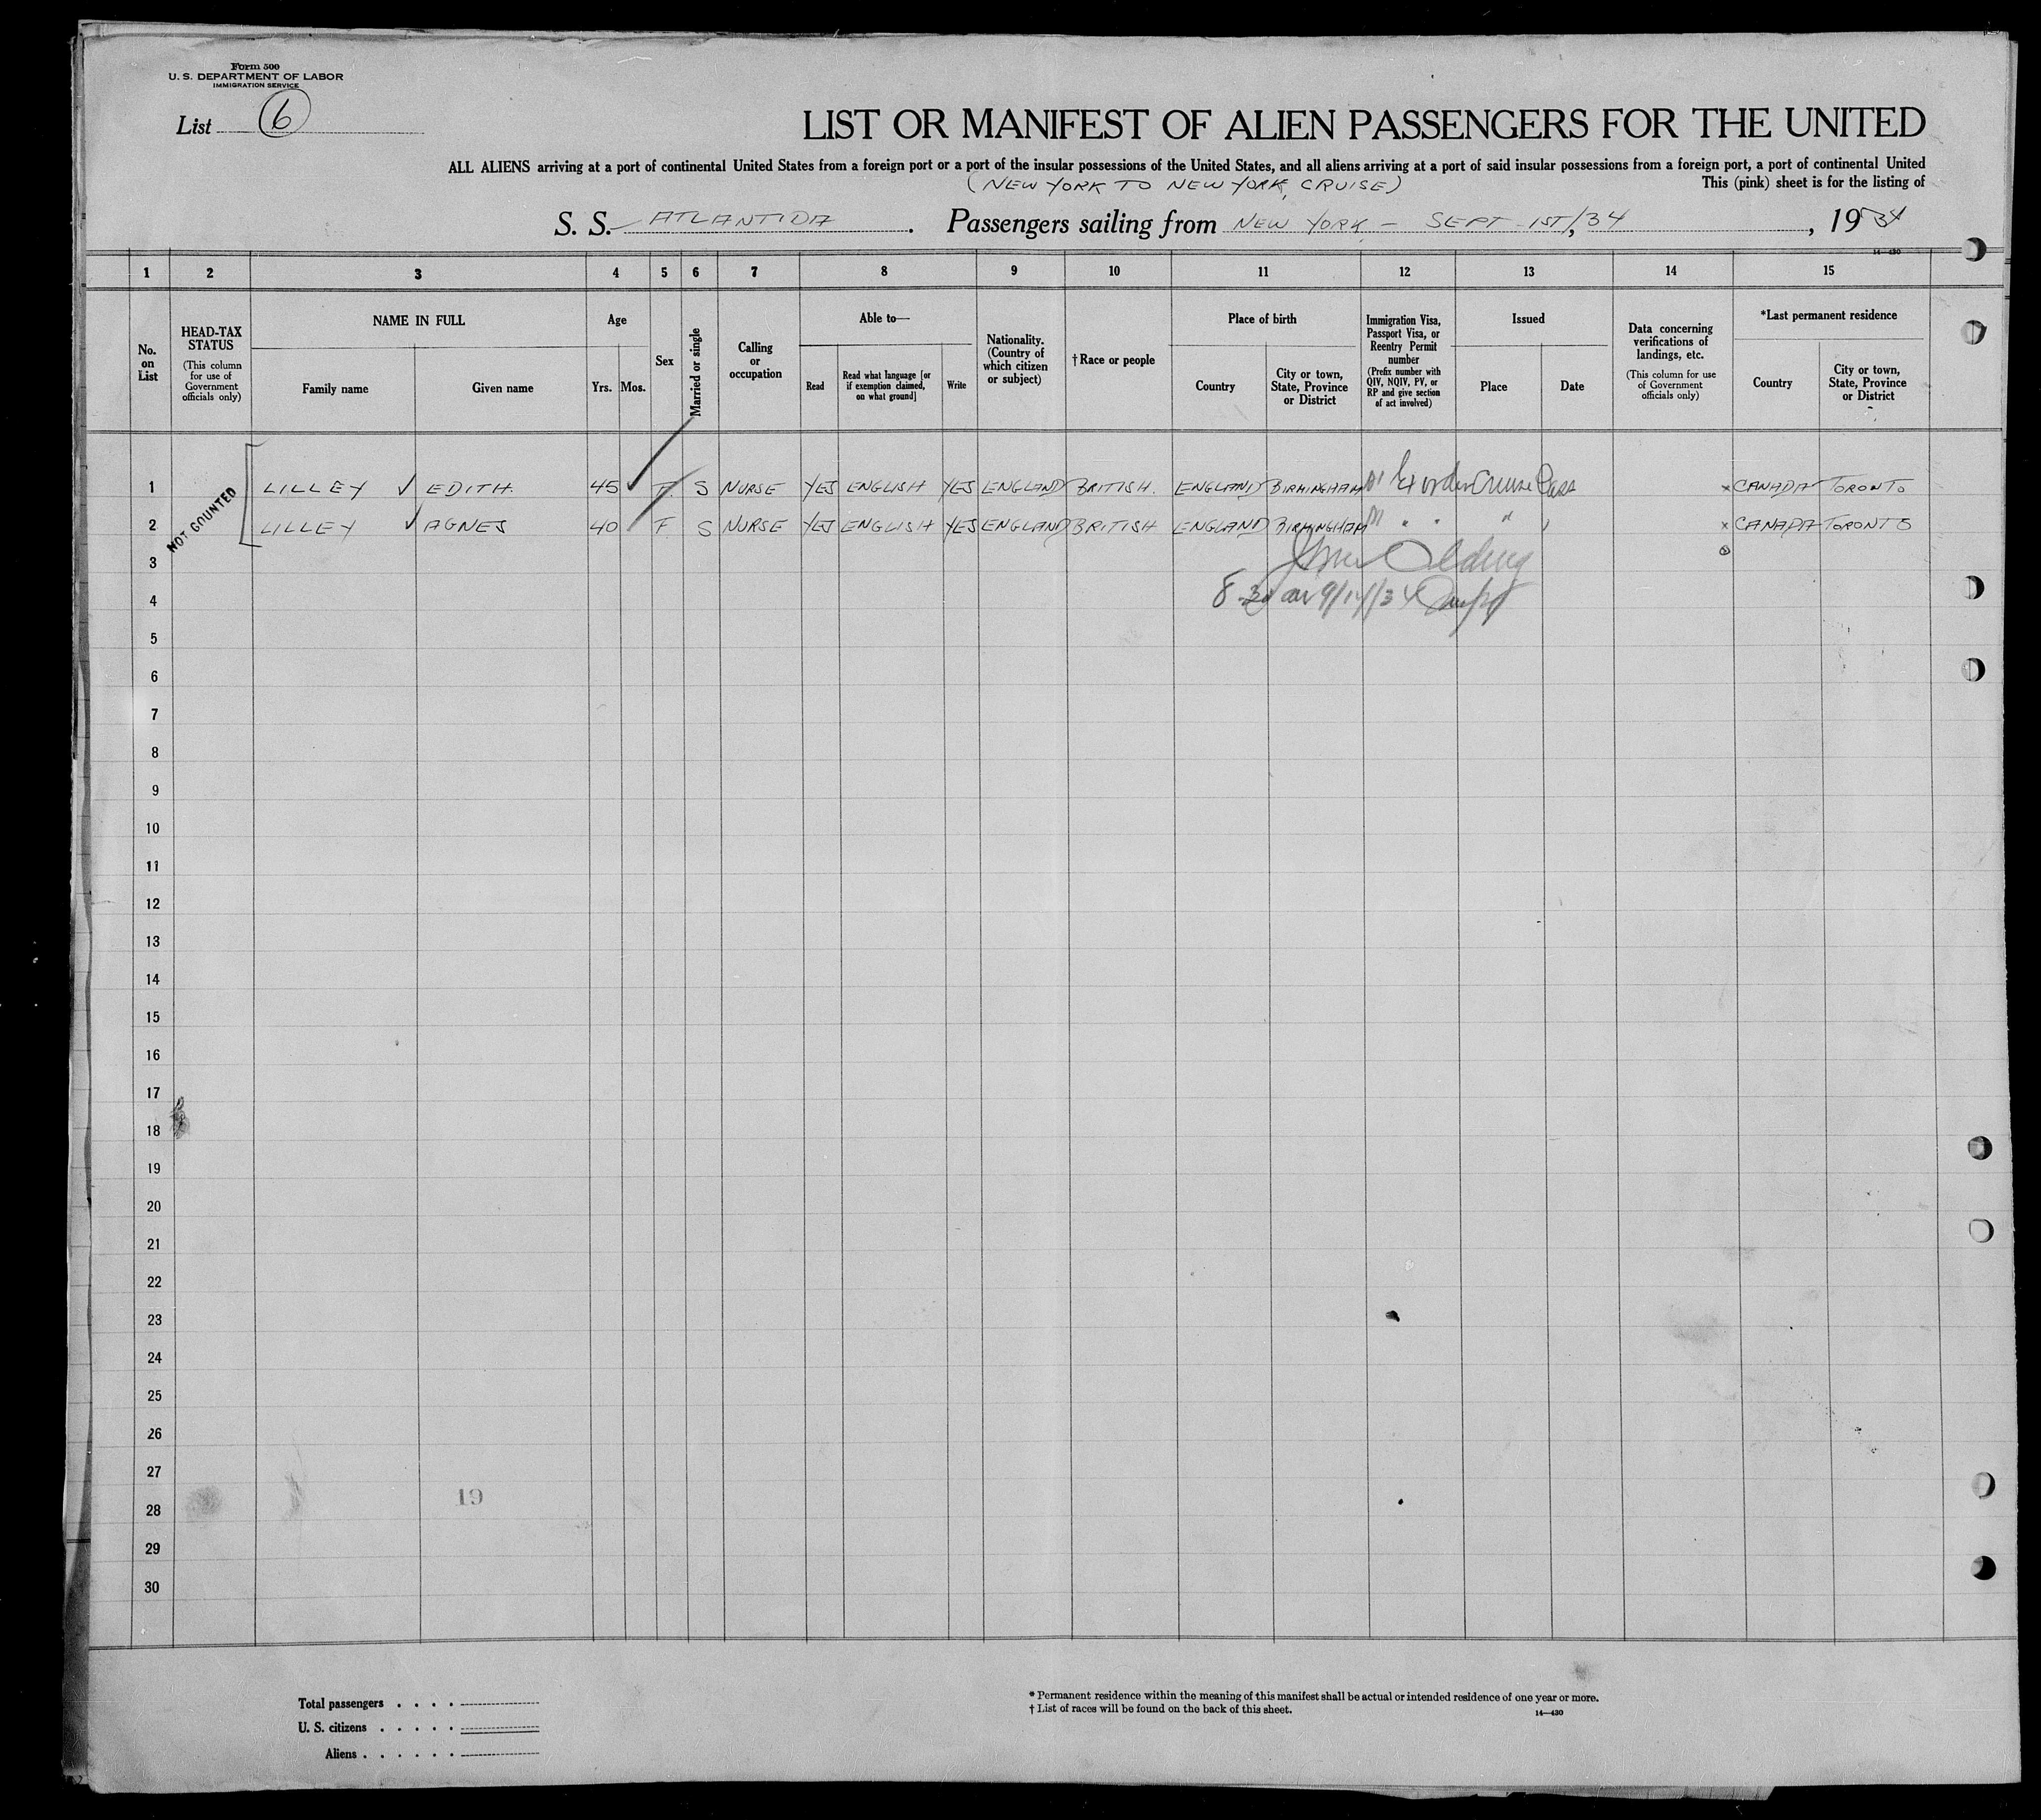 Form 500
U. S. DEPARTMENT OF LABOR
IMMIGRATION SERVICE
List 6
LIST OR MANIFEST OF ALIEN PASSENGERS FOR THE UNITED
ALL ALIENS arriving at a port of continental United States from a foreign port or a port of the insular possessions of the United States, and all aliens arriving at a port of said insular possessions from a foreign port, a port of continental United
(NEW YORK TO NEW YORK CRUISE) This (pink) sheet is for the listing of
S. S. ATLANTIDA. Passengers sailing from NEW YORK - SEPT 1ST/34, 1934
14—430
1 2 3 4 5 6 7 8 9 10 11 12 13 14 15
No. on List
HEAD-TAX STATUS
(This column for use of Government officials only)
NAME IN FULL
Family name
Given name
Age
Yrs.
Mos.
Sex
Married or single
Calling or occupation
Able to—
Read
Read what language [or if exemption claimed, on what ground]
Write
Nationality. (Country of which citizen or subject)
†Race or people
Place of birth
Country
City or town, State, Province or District
Immigration Visa, Passport Visa, or Reentry Permit number
(Prefix number with QIV, NQIV, PV, or RP and give section of act involved)
Issued
Place
Date
Data concerning verifications of landings, etc.
(This column for use of Government officials only)
*Last permanent residence
Country
City or town, State, Province or District
NOT COUNTED
1 LILLEY ✓ EDITH. 45 F. S NURSE YES ENGLISH YES ENGLAND BRITISH. ENGLAND BIRMINGHAM Cruise Pass x CANADA TORONTO
2 LILLEY ✓ AGNES 40 F. S NURSE YES ENGLISH YES ENGLAND BRITISH ENGLAND BIRMINGHAM " " " x CANADA TORONTO
3
4
5
6
7
8
9
10
11
12
13
14
15
16
17
18
19
20
21
22
23
24
25
26
27
19
28
29
30
Total passengers . . . .
U. S. citizens . . . . .
Aliens . . . . . .
* Permanent residence within the meaning of this manifest shall be actual or intended residence of one year or more.
† List of races will be found on the back of this sheet.
14—430